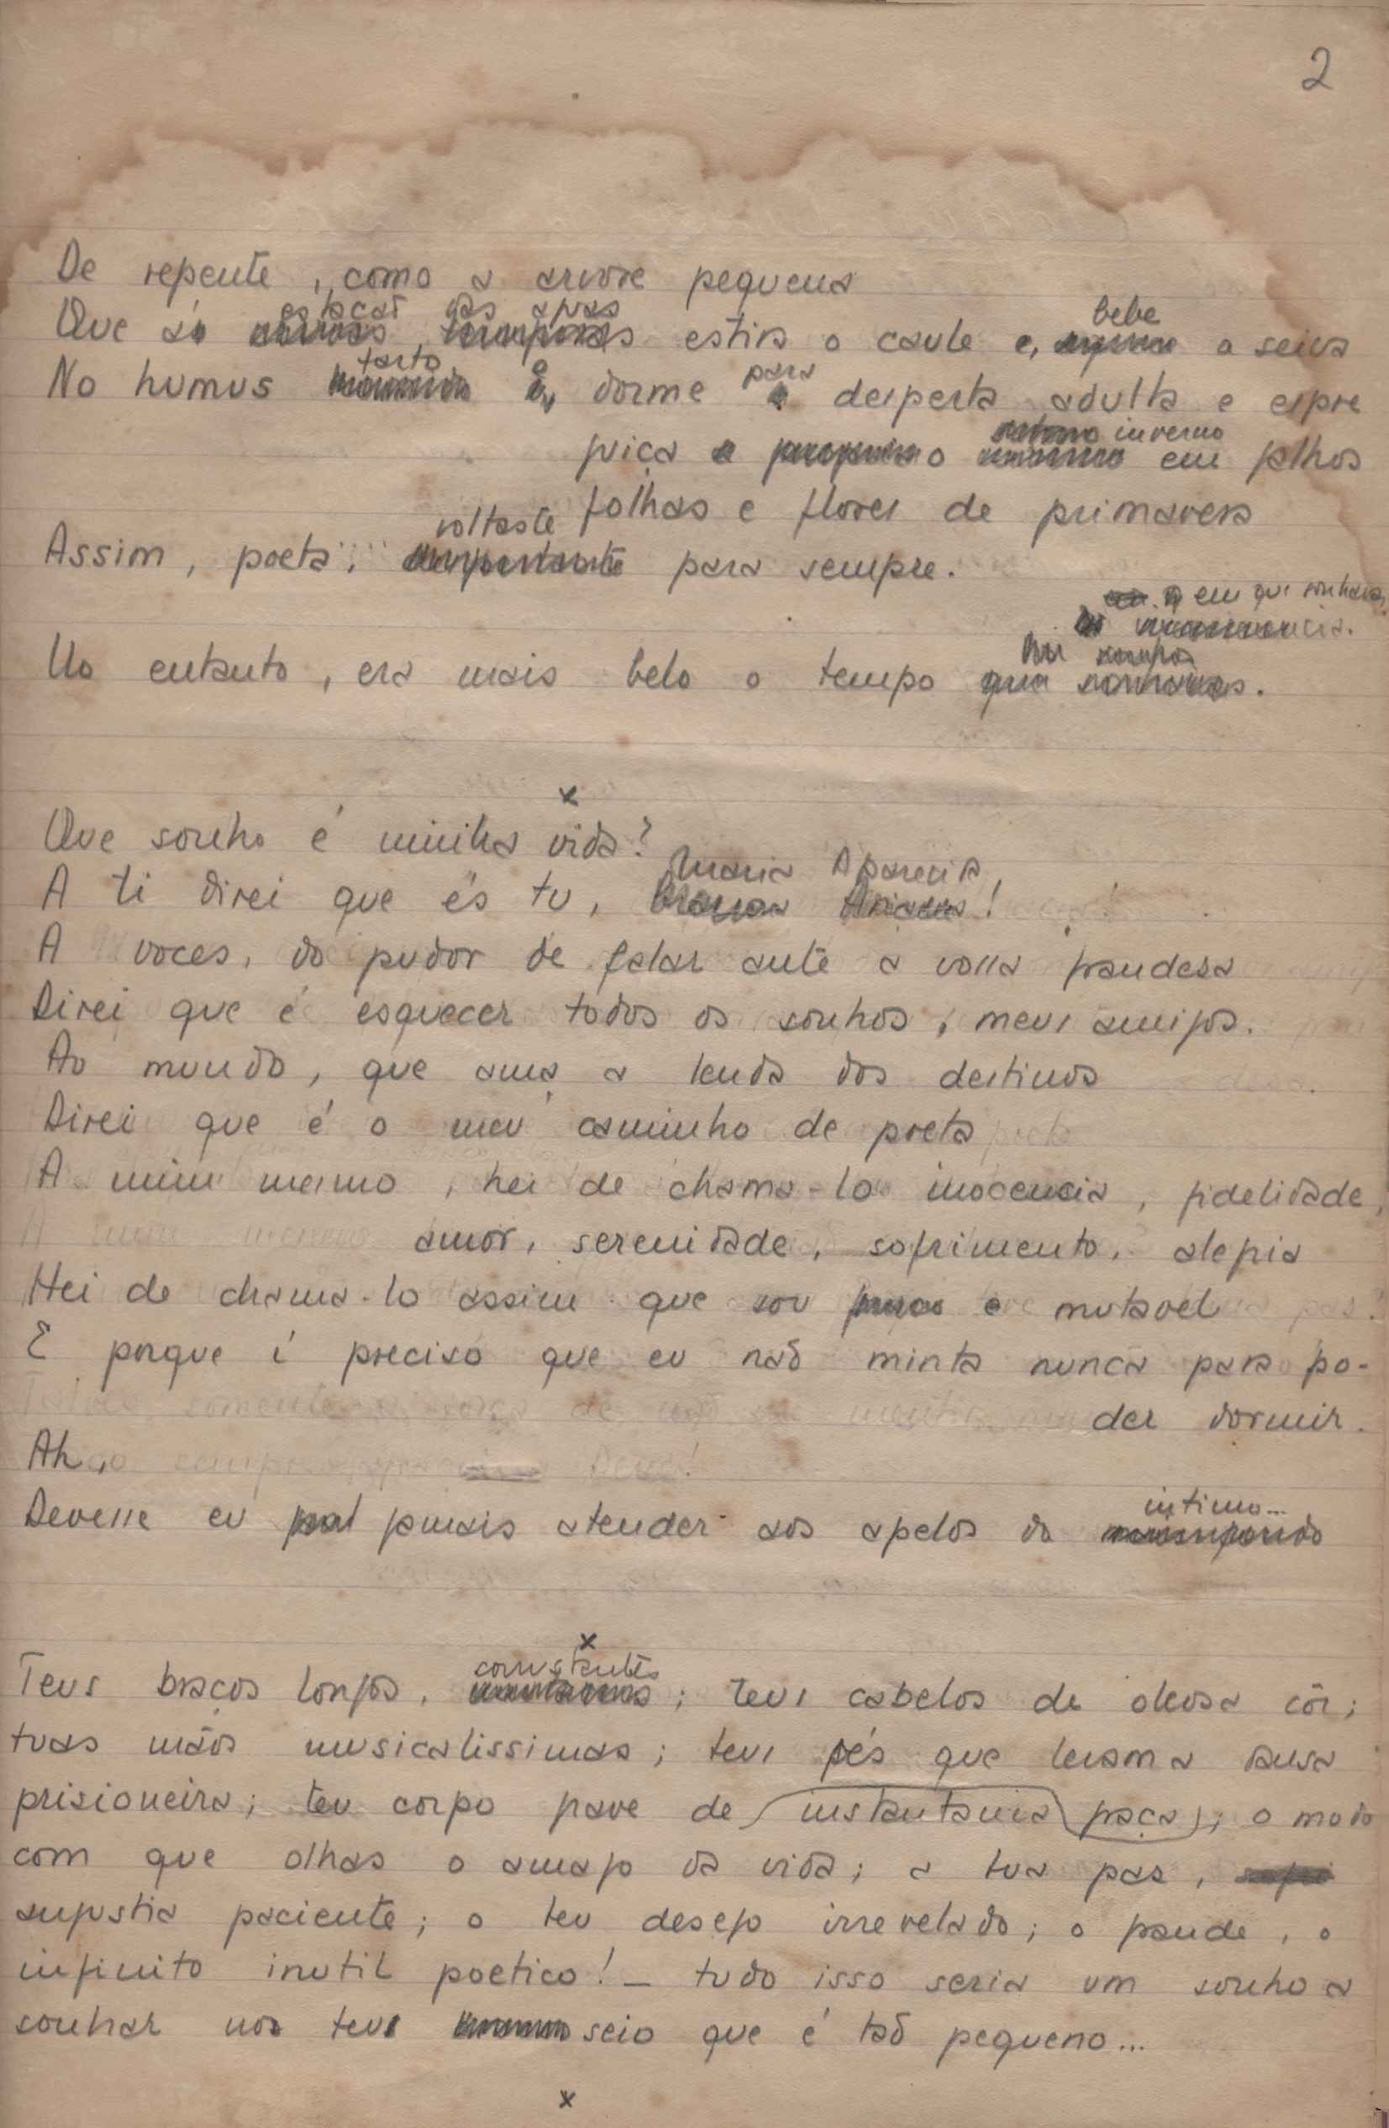 2
De repente, como a arvore pequena
estacar das aguas bebe
Que ao estira o caule e, a seiva
farto para
No humus e, dorme desperta adulta e espre
inverno
guiça o em galhos
folhas e flores de primavera
voltaste
Assim, poeta, para sempre.
em que sonhavas
No entanto, era mais belo o tempo
x
Que sonho é minha vida?
Maria Aparecida,
A ti direi que és tu, !
A voces, do pudor de falar ante a vossa grandesa
Direi que é esquecer todos os sonhos, meus amigos.
Ao mundo, que ama a lenda dos destinos
Direi que é o meu caminho de poeta
A mim mesmo, hei de chama-lo inocencia, fidelidade,
amor, serenidade, sofrimento, alegria
Hei de chama-lo assim que sou e mutavel
E porque é preciso que eu naõ minta nunca para po-
der dormir.
Ah,
intimo...
Devesse eu jamais atender aos apelos do
x
Teus braços longos, ; teus cabelos de oleosa côr;
tuas mãos musicalissimas; teus pés que levam a dansa
prisioneira; teu corpo grave de instantania graça; o modo
com que olhas o amago da vida; a tua paz,
angustia paciente; o teu desejo irrevelado; o grande, o
infinito inutil poetico! – tudo isso seria um sonho a
sonhar no teu seio que é taõ pequeno...
x